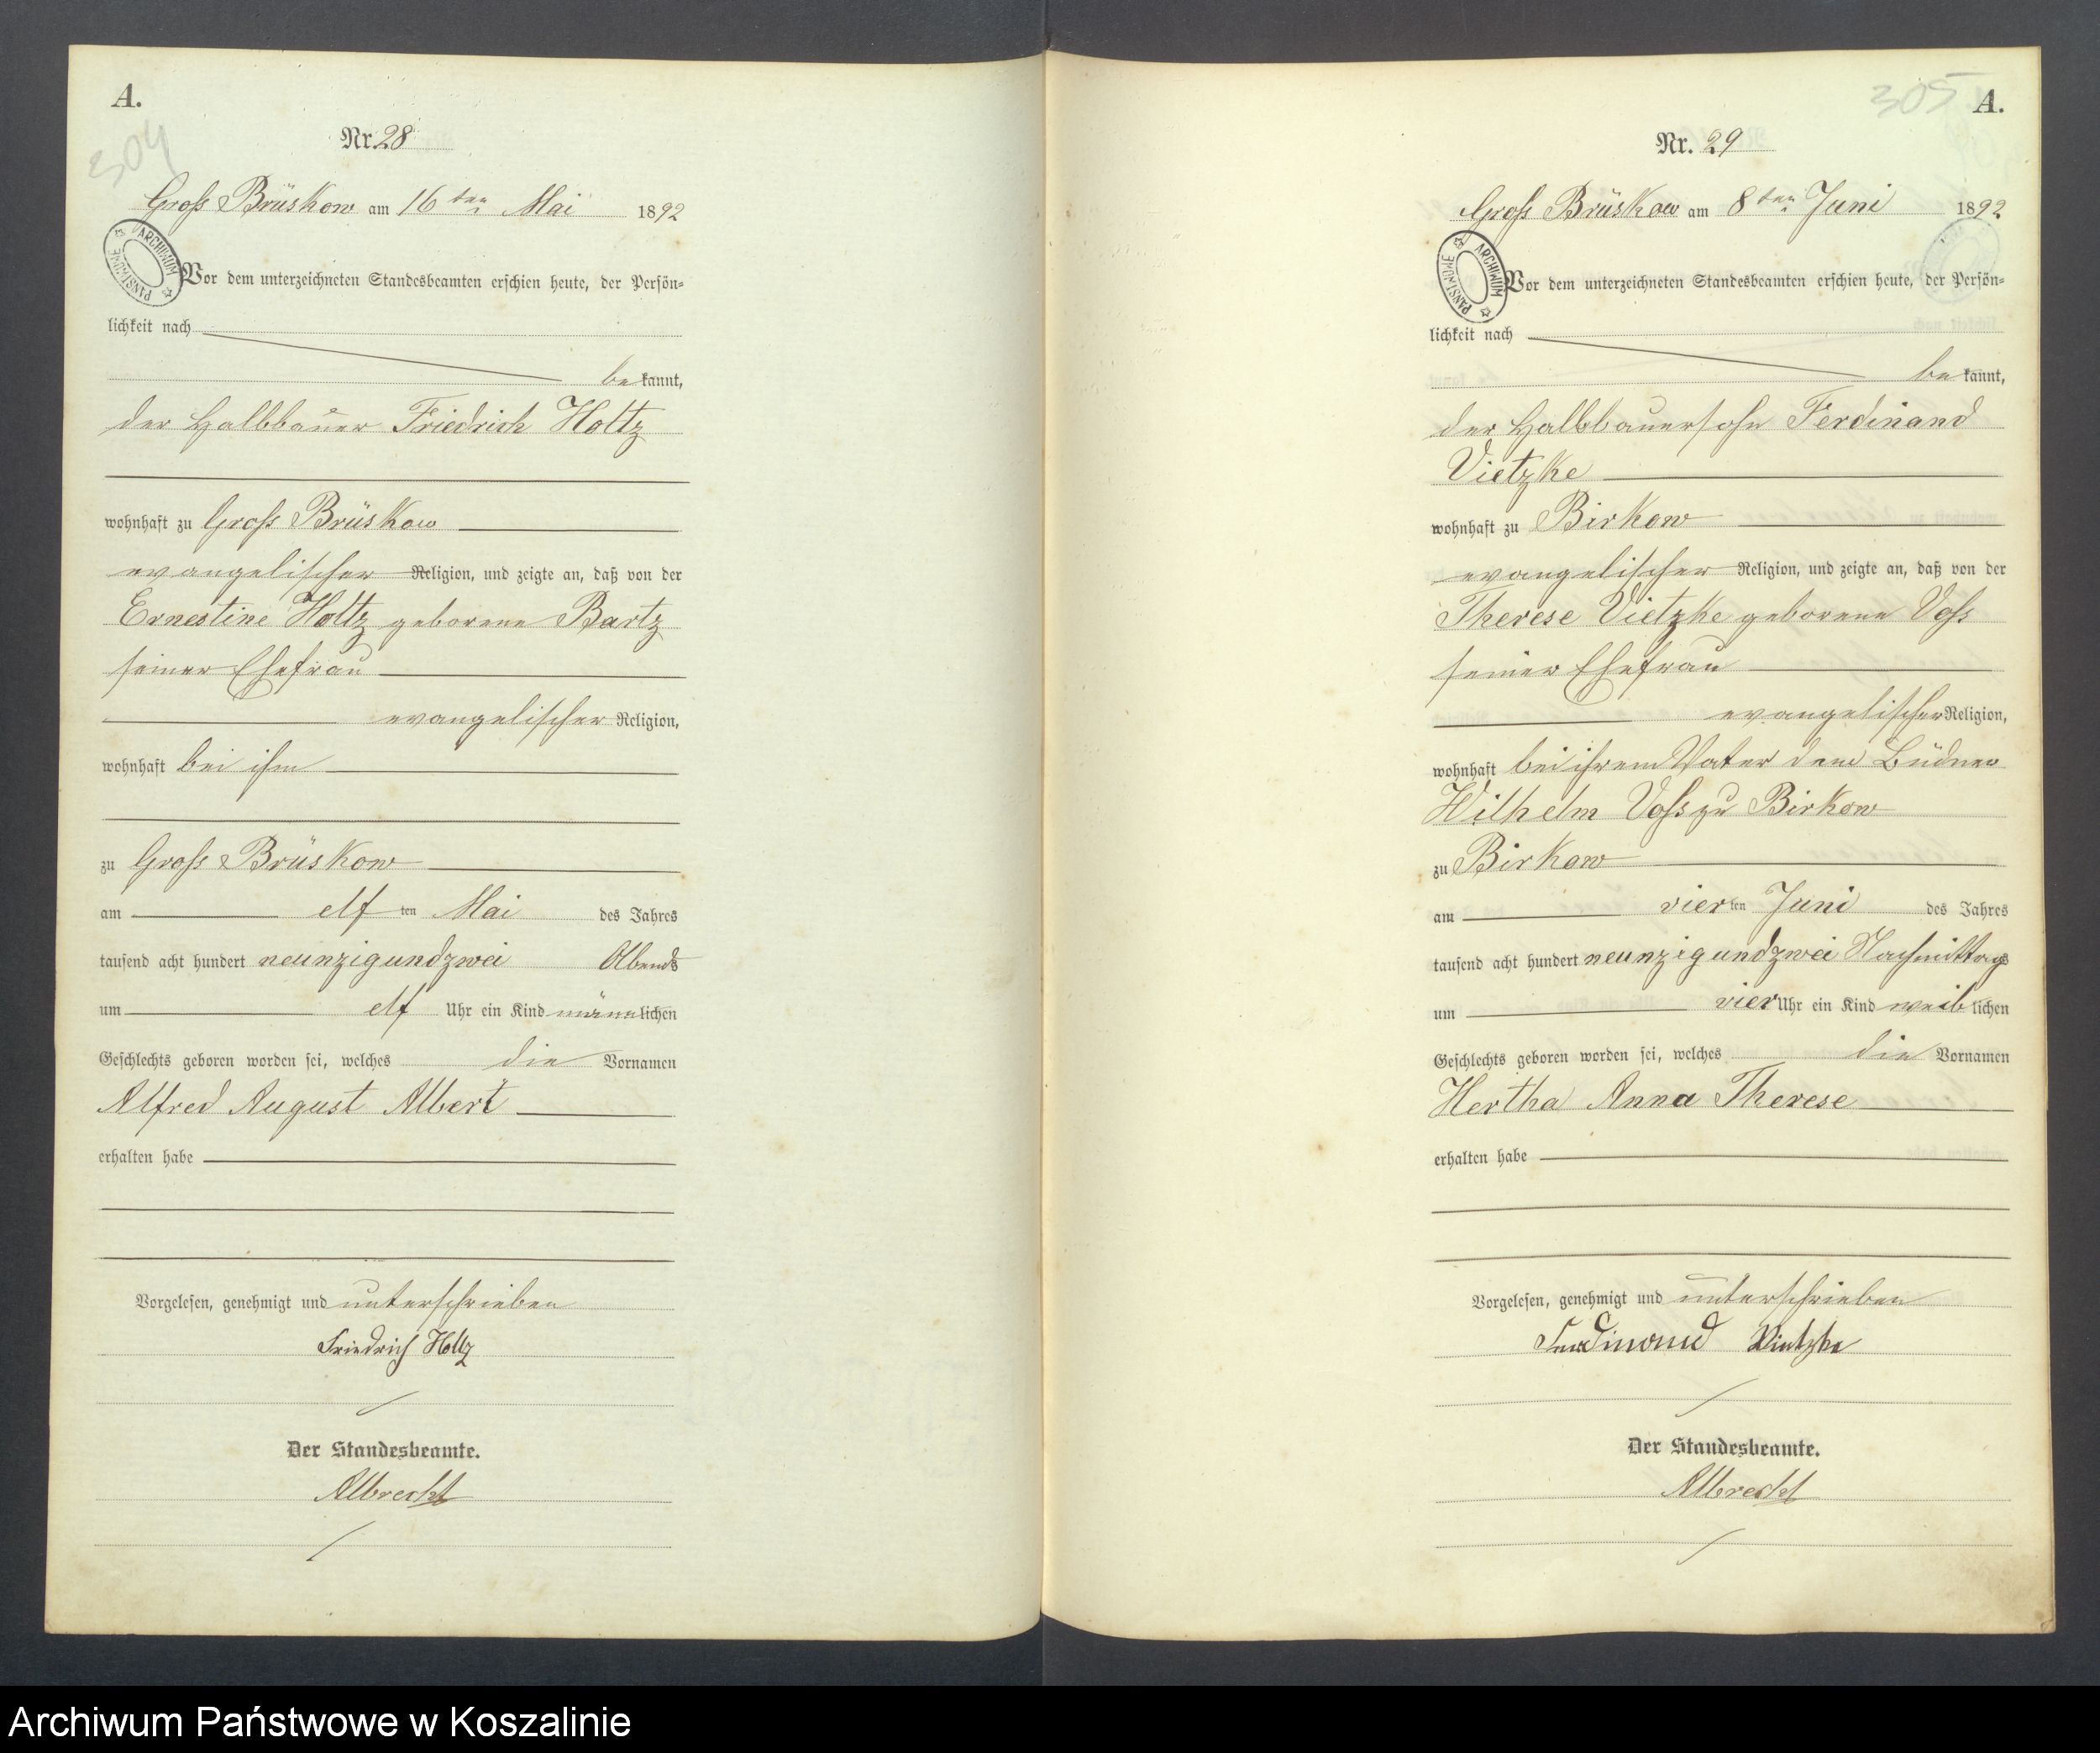 A.
304
Nr. 28
Groß Brüskow am 16ten Mai 1892
ARCHIWUM PAŃSTWOWE
Vor dem unterzeichneten Standesbeamten erschien heute, der Persön-
lichkeit nach
bekannt,
der Halbbauer Friedrich Holtz
wohnhaft zu Groß Brüskow
evangelischer Religion, und zeigte an, daß von der
Ernestine Holtz geborene Bartz
seiner Ehefrau
evangelischer Religion,
wohnhaft bei ihm
zu Groß Brüskow
am elften Mai des Jahres
tausend acht hundert neunzigundzwei Abends
um elf Uhr ein Kind männlichen
Geschlechts geboren worden sei, welches die Vornamen
Alfred August Albert
erhalten habe
Vorgelesen, genehmigt und unterschrieben
Friedrich Holtz
Der Standesbeamte.
Albrecht
305
A.
Nr. 29
Groß Brüskow am 8ten Juni 1892
ARCHIWUM PAŃSTWOWE
Vor dem unterzeichneten Standesbeamten erschien heute, der Persön-
lichkeit nach
bekannt,
der Halbbauersohn Ferdinand
Vietzke
wohnhaft zu Birkow
evangelischer Religion, und zeigte an, daß von der
Therese Vietzke geborene Voß
seiner Ehefrau
evangelischer Religion,
wohnhaft bei ihrem Vater dem Büdner
Wilhelm Voß zu Birkow
zu Birkow
am vierten Juni des Jahres
tausend acht hundert neunzigundzwei Nachmittags
um vier Uhr ein Kind weiblichen
Geschlechts geboren worden sei, welches die Vornamen
Hertha Anna Therese
erhalten habe
Vorgelesen, genehmigt und unterschrieben
Ferdinand Vietzke
Der Standesbeamte.
Albrecht
Archiwum Państwowe w Koszalinie